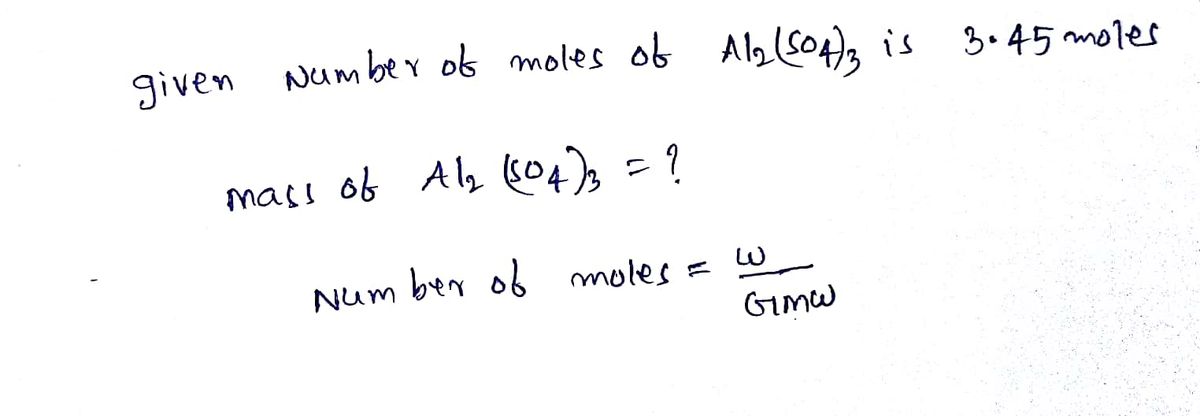 given Number of moles of Al₂(SO₄)₃ is 3.45 moles
mass of Al₂(SO₄)₃ = ?
Number of moles = W
GMW